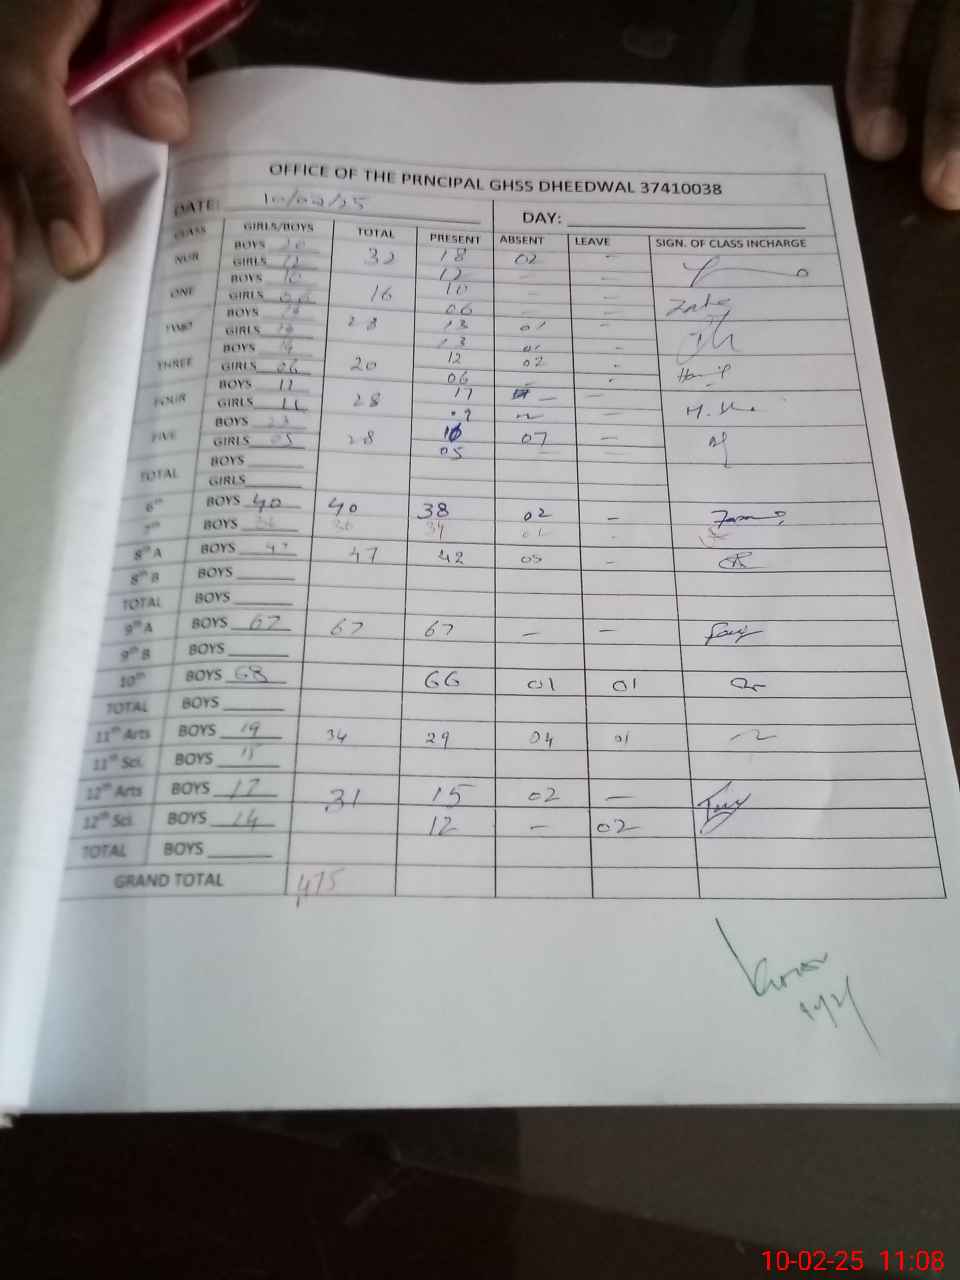 OFFICE OF THE PRNCIPAL GHSS DHEEDWAL 37410038
DATE: 10/02/25 DAY:
CLASS GIRLS/BOYS TOTAL PRESENT ABSENT LEAVE SIGN. OF CLASS INCHARGE
NUR BOYS 20 32 18 02 -
GIRLS 12 12 - -
ONE BOYS 10 16 10 - -
GIRLS 06 06 - -
TWO BOYS 14 28 13 01 -
GIRLS 14 13 01 -
THREE BOYS 14 20 12 02 -
GIRLS 06 06 - -
FOUR BOYS 17 28 17 - -
GIRLS 11 -
FIVE BOYS 23 28 16 07 -
GIRLS 05 05
TOTAL BOYS
GIRLS
6th BOYS 40 40 38 02 -
7th BOYS 36 36 01 -
8th A BOYS 47 47 42 05 -
8th B BOYS
TOTAL BOYS
9th A BOYS 67 67 67 - -
9th B BOYS
10th BOYS 68 66 01 01
TOTAL BOYS
11th Arts BOYS 19 34 29 04 01
11th Sci. BOYS 15
12th Arts BOYS 17 31 15 02 -
12th Sci. BOYS 14 12 - 02
TOTAL BOYS
GRAND TOTAL 475
10-02-25 11:08